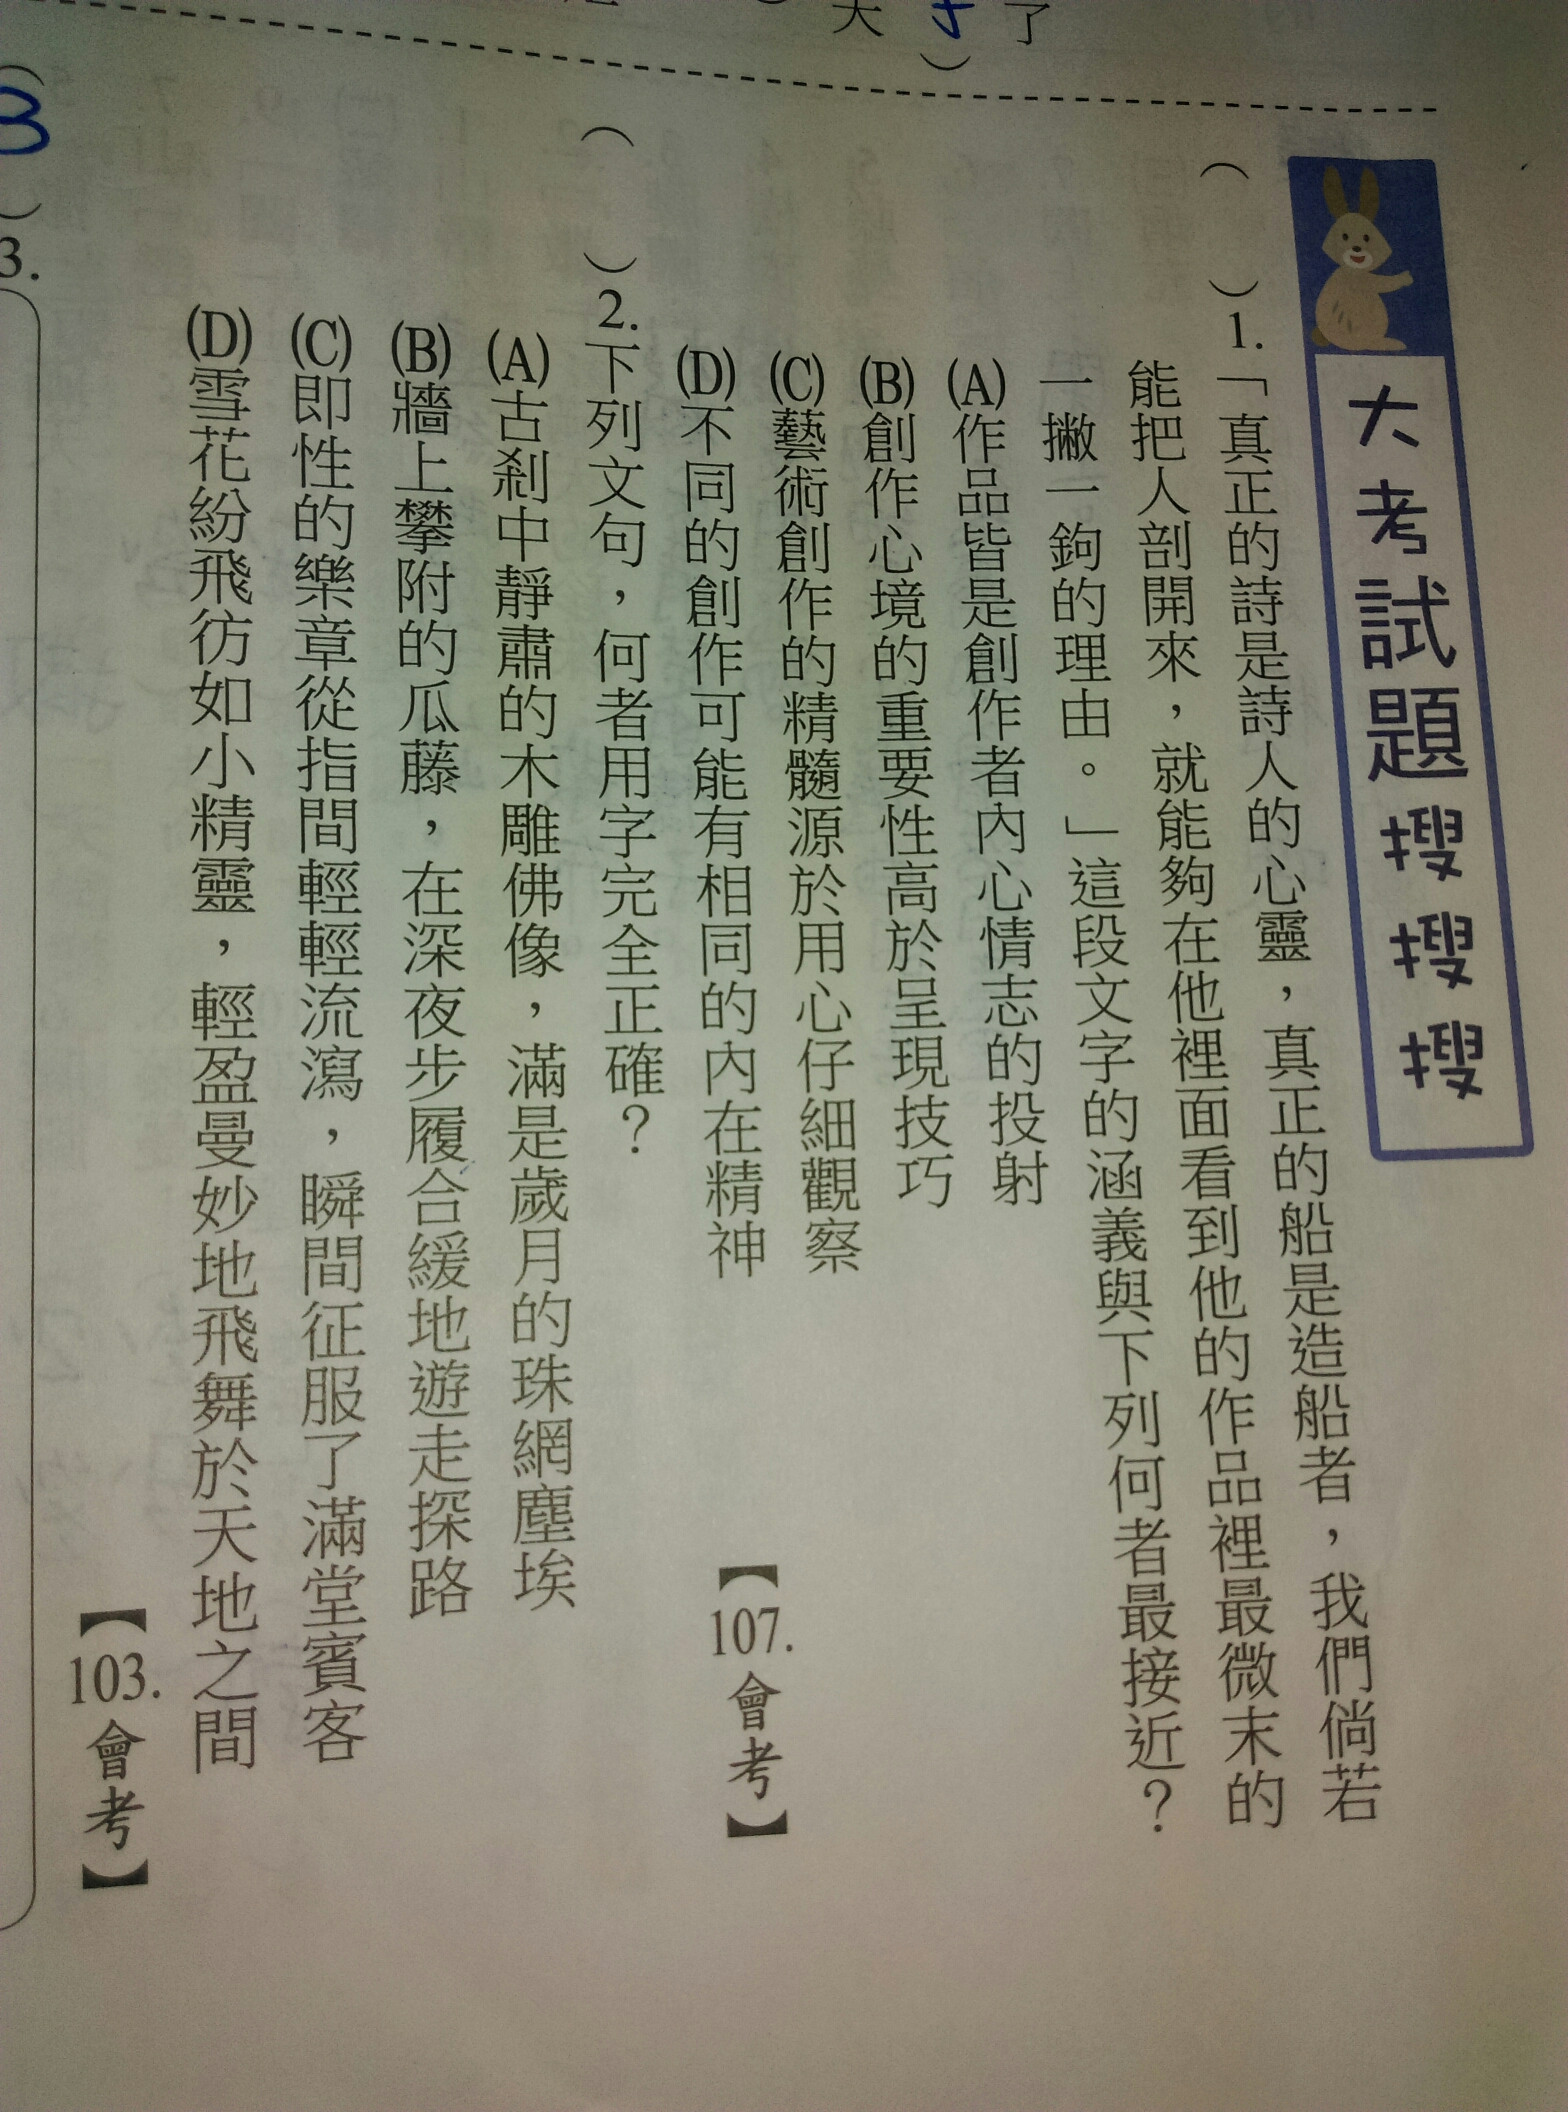 了
き）
天
大考試題搜搜搜
（　）1.「真正的詩是詩人的心靈，真正的船是造船者，我們倘若
能把人剖開來，就能夠在他裡面看到他的作品裡最微末的
一撇一鉤的理由。」這段文字的涵義與下列何者最接近？
(A)作品皆是創作者內心情志的投射
(B)創作心境的重要性高於呈現技巧
(C)藝術創作的精髓源於用心仔細觀察
(D)不同的創作可能有相同的內在精神
【107.會考】
（　）2.下列文句，何者用字完全正確？
(A)古剎中靜肅的木雕佛像，滿是歲月的珠網塵埃
(B)牆上攀附的瓜藤，在深夜步履合緩地遊走探路
(C)即性的樂章從指間輕輕流瀉，瞬間征服了滿堂賓客
(D)雪花紛飛彷如小精靈，輕盈曼妙地飛舞於天地之間
【103.會考】
3.